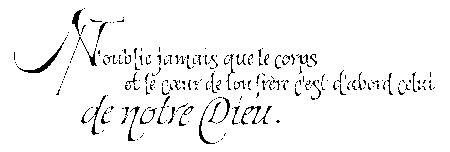 N'oublie jamais que le corps
et le cœur de ton frère c'est d'abord celui
de notre Dieu.